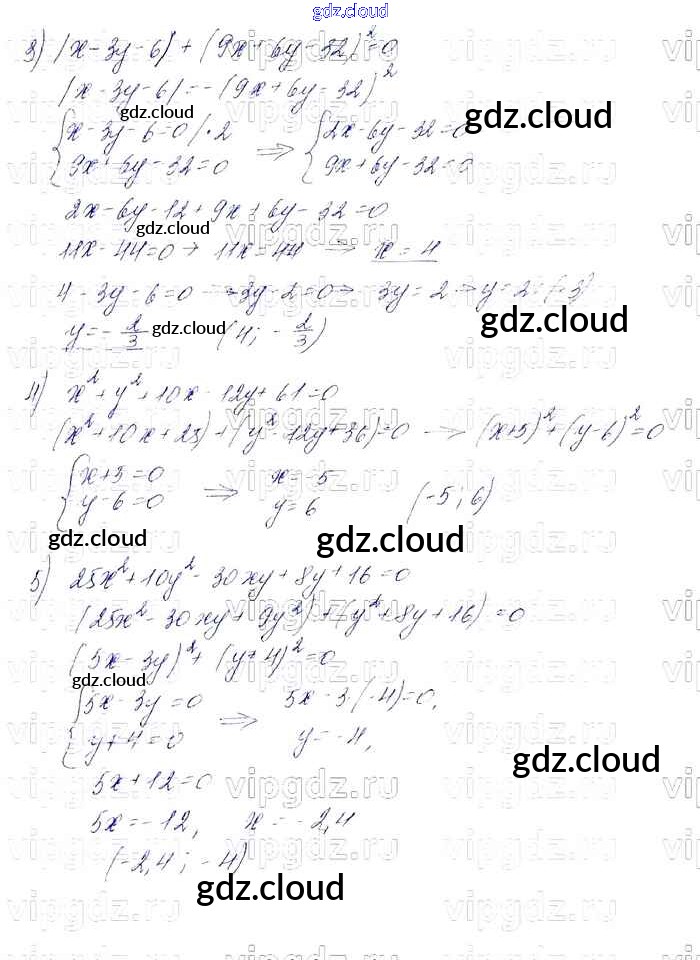 gdz.cloud
3) |x - 3y - 6| + (9x + 6y - 32)² = 0
|x - 3y - 6| = -(9x + 6y - 32)²
gdz.cloud gdz.cloud
{x - 3y - 6 = 0 |·2 => {2x - 6y - 32 = 0
9x + 6y - 32 = 0 9x + 6y - 32 = 0
2x - 6y - 12 + 9x + 6y - 32 = 0
gdz.cloud
11x - 44 = 0 → 11x = 44 => x = 4
4 - 3y - 6 = 0 → -3y - 2 = 0 → -3y = 2 → y = 2 : (-3)
y = -2/3 gdz.cloud (4; -2/3) gdz.cloud
4) x² + y² + 10x - 12y + 61 = 0
(x² + 10x + 25) + (y² - 12y + 36) = 0 → (x+5)² + (y-6)² = 0
{x + 5 = 0 => x = -5
y - 6 = 0 y = 6 (-5; 6)
gdz.cloud gdz.cloud gdz.cloud
5) 25x² + 10y² - 30xy + 8y + 16 = 0
(25x² - 30xy + 9y²) + (y² + 8y + 16) = 0
(5x - 3y)² + (y + 4)² = 0
gdz.cloud
{5x - 3y = 0 => 5x - 3·(-4) = 0,
y + 4 = 0 y = -4,
gdz.cloud
5x + 12 = 0
5x = -12, x = -2,4
(-2,4; -4)
gdz.cloud